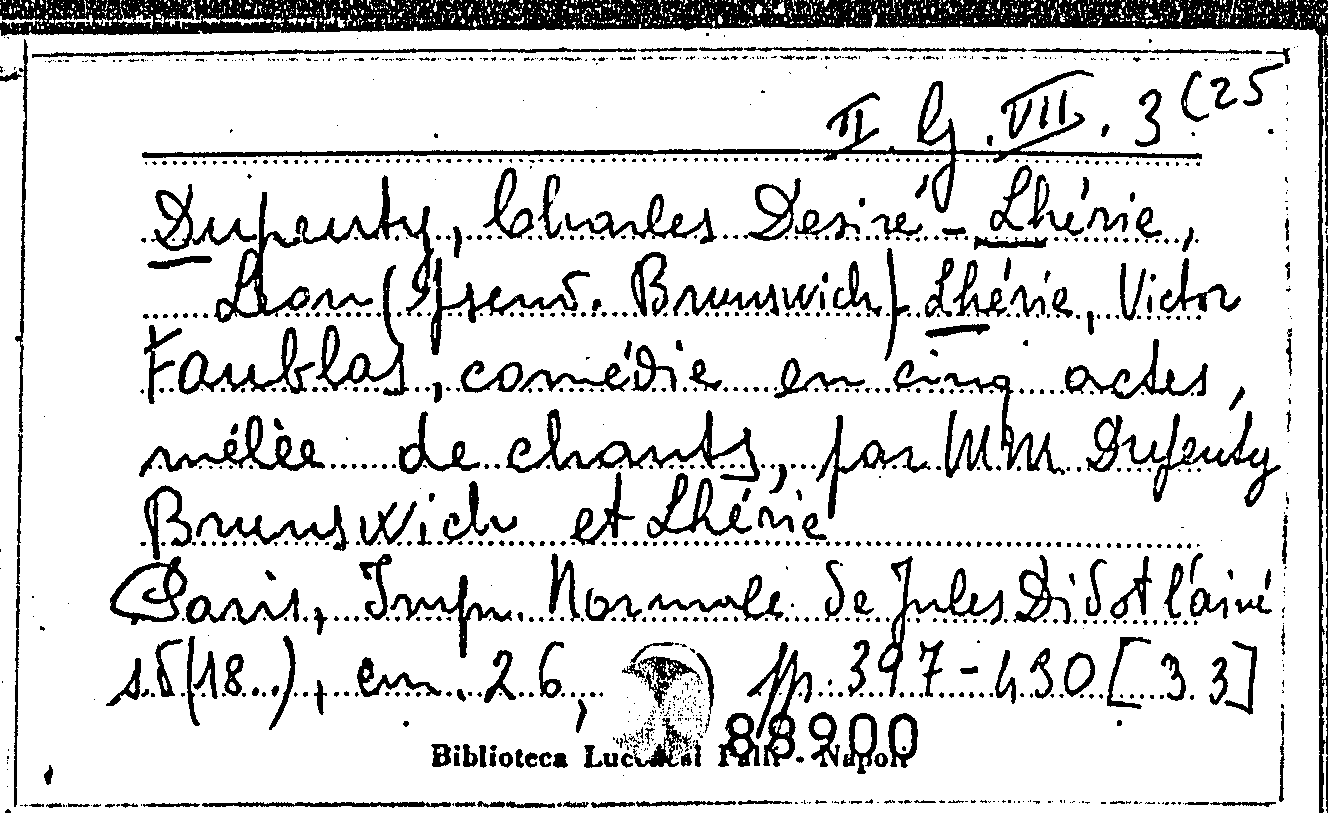 II. G. VII. 3 (25
Dupeuty, Charles Desiré - Lhérie,
Leon (Pseud. Brunswich) - Lhérie, Victor
Faublas, comédie en cinq actes,
mélèe de chants, par MM Dupeuty
Brunswich et Lhérie
Paris, Imp. Normale de Jules Didot l'ainé
s.d (18..), cm. 26, pp. 397-430 [33]
88900
Biblioteca Lucchesi Palli - Napoli